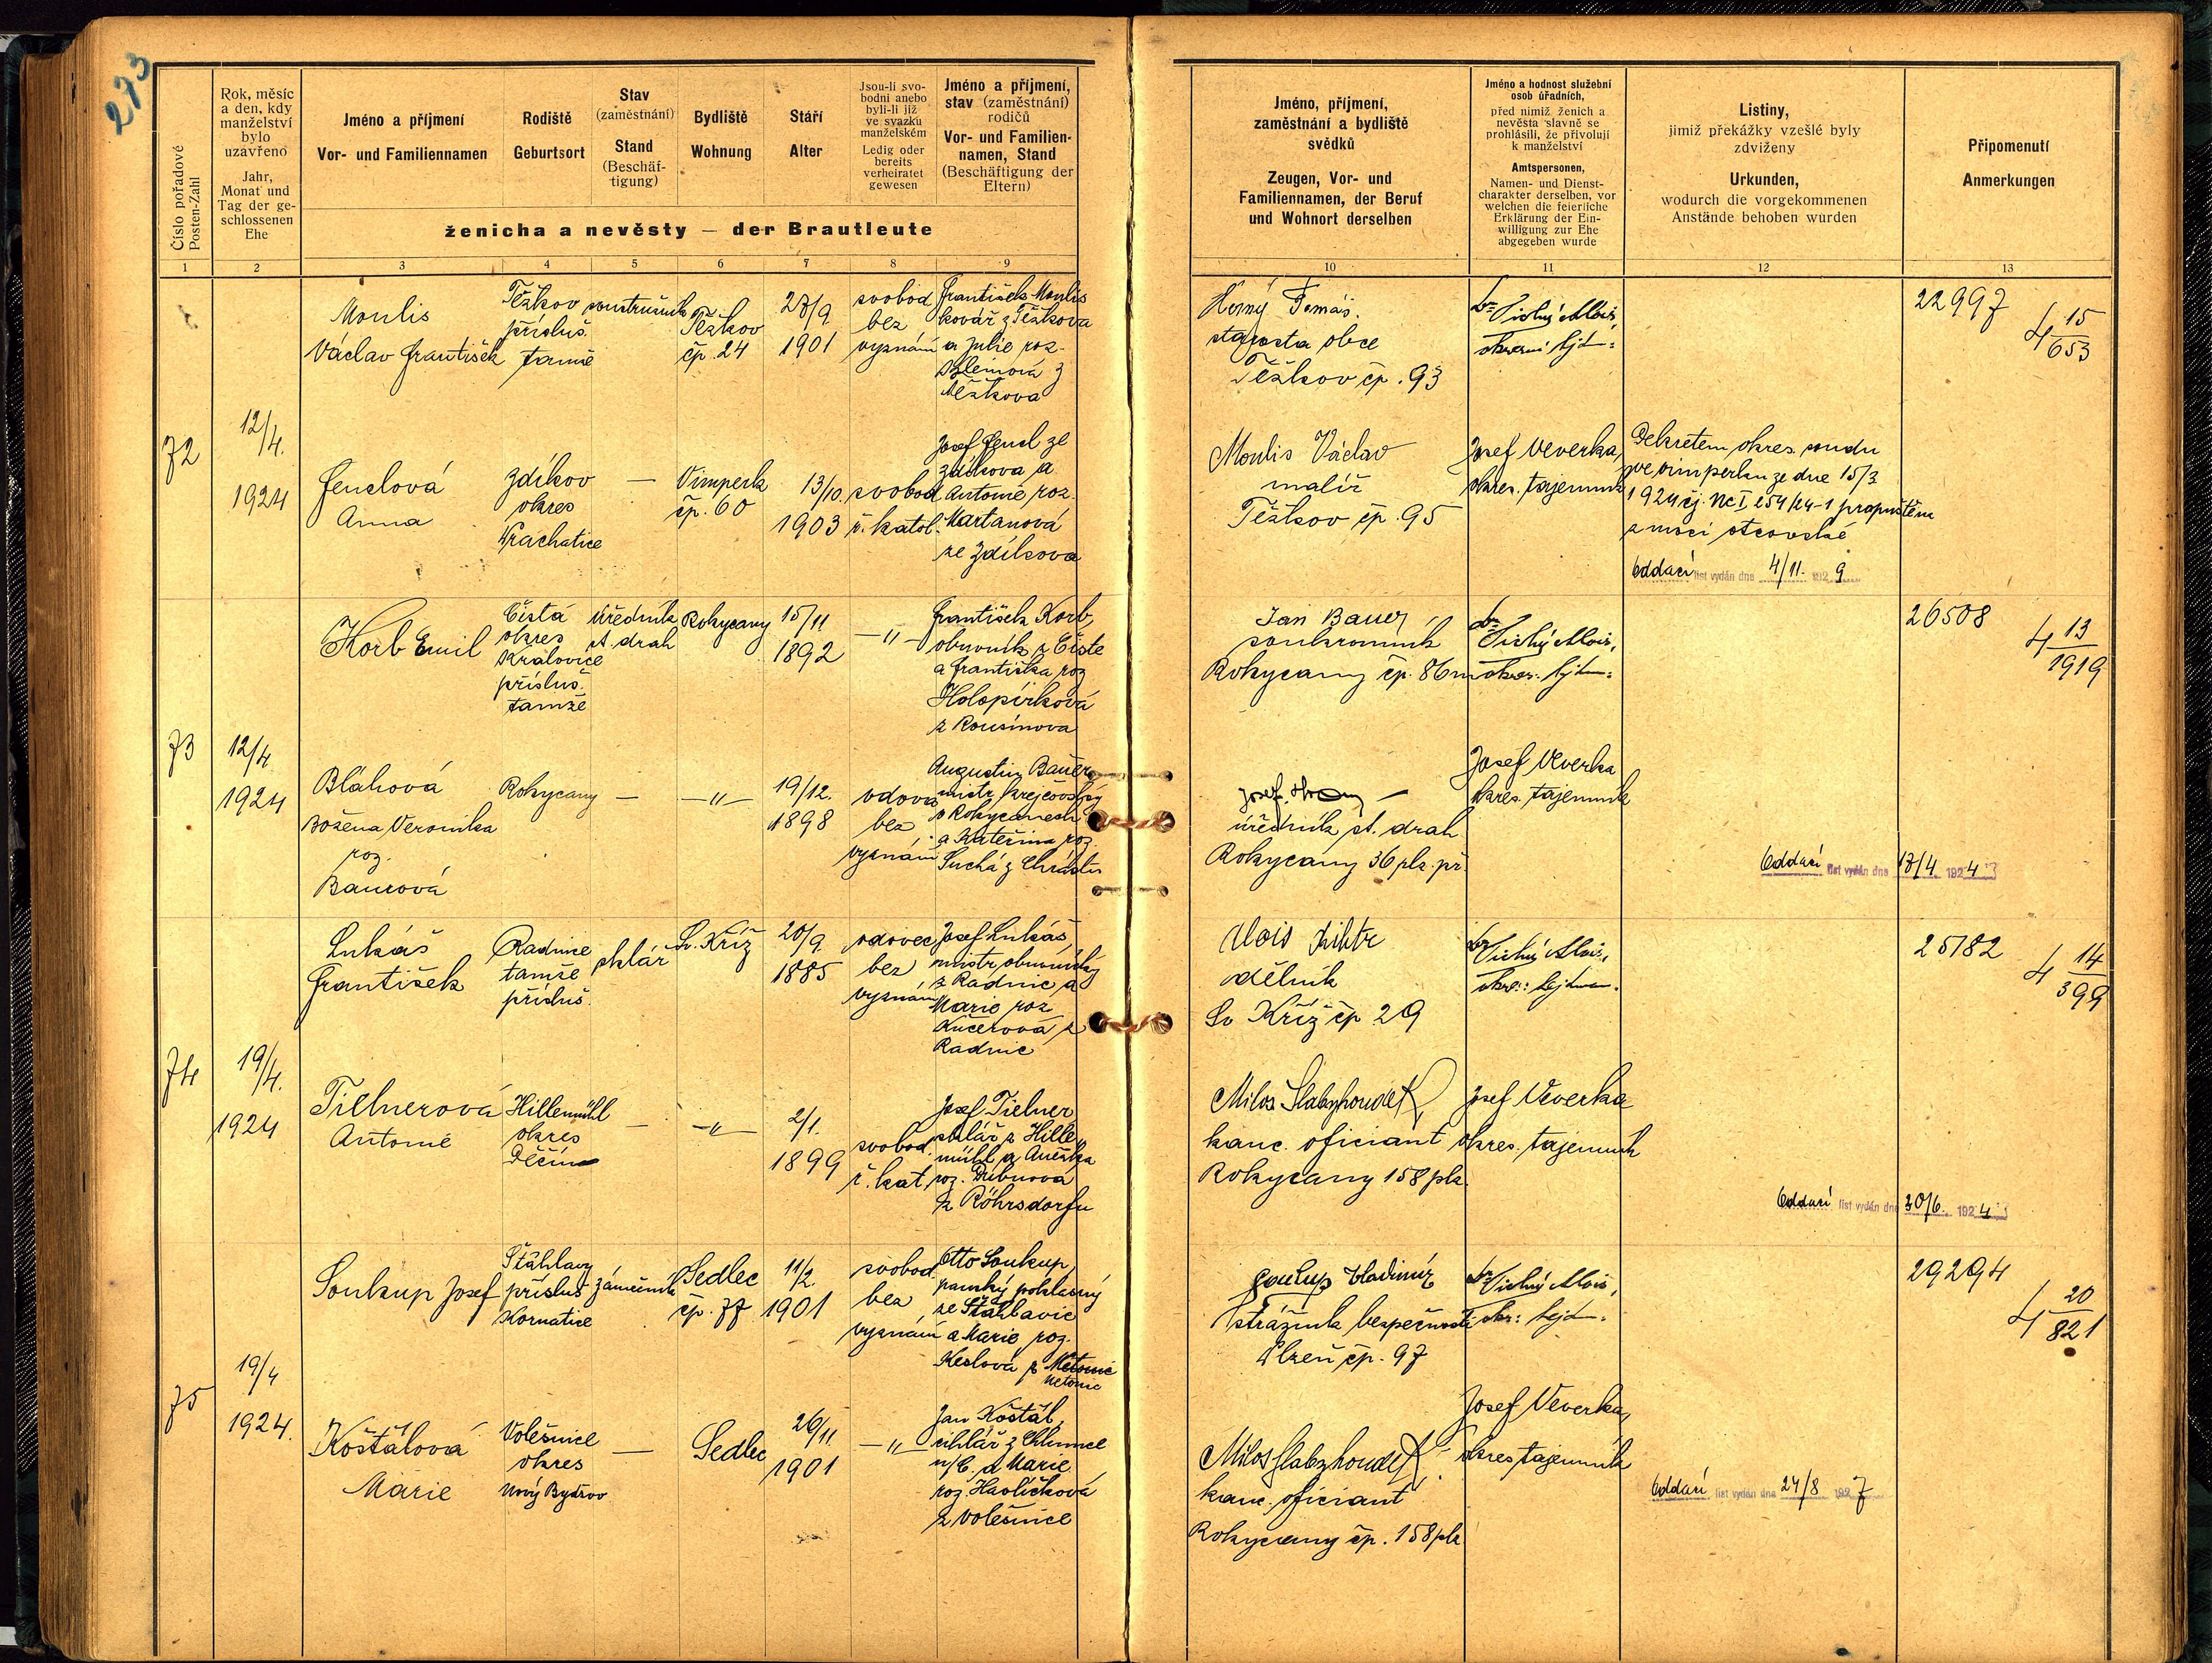 273
Číslo pořadové
Posten-Zahl
Rok, měsíc
a den, kdy
manželství
bylo
uzavřeno
Jahr,
Monat und
Tag der ge-
schlossenen
Ehe
Jméno a příjmení
Vor- und Familiennamen
Rodiště
Geburtsort
Stav
(zaměstnání)
Stand
(Beschäf-
tigung)
Bydliště
Wohnung
Stáří
Alter
Jsou-li svo-
bodni anebo
byli-li již
ve svazku
manželském
Ledig oder
bereits
verheiratet
gewesen
Jméno a příjmení,
stav (zaměstnání)
rodičů
Vor- und Familien-
namen, Stand
(Beschäftigung der
Eltern)
ženicha a nevěsty — der Brautleute
Jméno, příjmení,
zaměstnání a bydliště
svědků
Zeugen, Vor- und
Familiennamen, der Beruf
und Wohnort derselben
Jméno a hodnost služební
osob úřadních,
před nimiž ženich a
nevěsta slavně se
prohlásili, že přivolují
k manželství
Amtspersonen,
Namen- und Dienst-
charakter derselben, vor
welchen die feierliche
Erklärung der Ein-
willigung zur Ehe
abgegeben wurde
Listiny,
jimiž překážky vzešlé byly
zdviženy
Urkunden,
wodurch die vorgekommenen
Anstände behoben wurden
Připomenutí
Anmerkungen
1 2 3 4 5 6 7 8 9 10 11 12 13
72
12/4.
1924
Moulis
Václav František
Těžkov
přísluš.
tamže
Těžkov
čp. 24
28/9
1901
svobod
bez
vyznání
František Moulis
kovář z Těžkova
a Julie roz.
z
Těžkova
Horný Tomáš.
starosta obce
Těžkov čp. 93
Dr Tichý Alois,
okresní hejtm:
22997
4 15/653
Fenclová
Anna
Zdíkov
okres
Prachatice
—
Vimperk
čp. 60
13/10.
1903
svobod
ř. katol.
Josef Fencl ze
Zdíkova a
Antonie roz.
Martanová
ze Zdíkova
Moulis Václav
malíř
Těžkov čp. 95
Josef Veverka,
okres. tajemník
Dekretem okres. soudu
ve Vimperku ze dne 15/3
1924 čj. Nc I 254/24-1 propuštěna
z moci otcovské
Oddací list vydán dne 4/11. 1929
73
12/4
1924
Korb Emil
Čistá
okres
Kralovice
přísluš.
tamže
úředník
st. drah
Rokycany
15/11
1892
—"—
František Korb,
obuvník z Čisté
a Františka roz
Holopírková
z Rousínova
Jan Bauer,
soukromník
Rokycany čp. 86
Dr Tichý Alois,
okres. hejtm:
26508
4 13/1919
Bláhová
Božena Veronika
roz.
Baurová
Rokycany
—
—"—
19/12.
1898
vdova
bez
vyznání
Augustin Bauer
mistr krejčovský
v Rokycanech
a Kateřina roz.
Suchá z Chrástu
Josef
úředník st. drah
Rokycany 36 plz. př.
Josef Veverka
okres. tajemník
Oddací list vydán dne 18/4. 1924
74
19/4.
1924
Lukáš
František
Radnice
tamže
přísluš.
sklář
Sv. Kříž
20/9
1885
vdovec
bez
vyznání
Josef Lukáš,
mistr obuvnický
z Radnic a
Marie roz
Kučerová z
Radnic
Alois
dělník
Sv Kříž čp 29
Dr Tichý Alois,
okres: hejtman.
25782
4 14/399
Tielnerová
Antonie
Hillemühl
okres
Děčín
—
—"—
2/1.
1899
svobod.
ř. kat.
Josef Tielner
sklář z Hille
mühl a Anežka
roz.
z Röhrsdorfu
Miloš Slabyhoudek,
kanc. oficiant
Rokycany 158 plz.
Josef Veverka
okres. tajemník
Oddací list vydán dne 30/6. 1924
75
19/4
1924.
Soukup Josef
Šťáhlavy
přísluš
Kornatice
zámečník
Sedlec
čp. 77
11/2.
1901
svobod.
bez
vyznání
Otto Soukup,
panský pokladný
ze Šťáhlavic
a Marie roz.
Keslová z Netonic
Netonic
Soukup Vladimír
strážník bezpečnosti
Plzeň čp. 97
Dr Tichý Alois,
okr: hejtm.
29294
4 20/821
Košťálová
Marie
Volešnice
okres
Nový Bydžov
—
Sedlec
26/11.
1901
—"—
Jan Košťál,
cihlář z Chlumce
n/C. a Marie
roz. Havlíčková
z Volešnice
Miloš Slabyhoudek,
kanc. oficiant
Rokycany čp. 158 plz
Josef Veverka,
okres tajemník
Oddací list vydán dne 24/8 1927